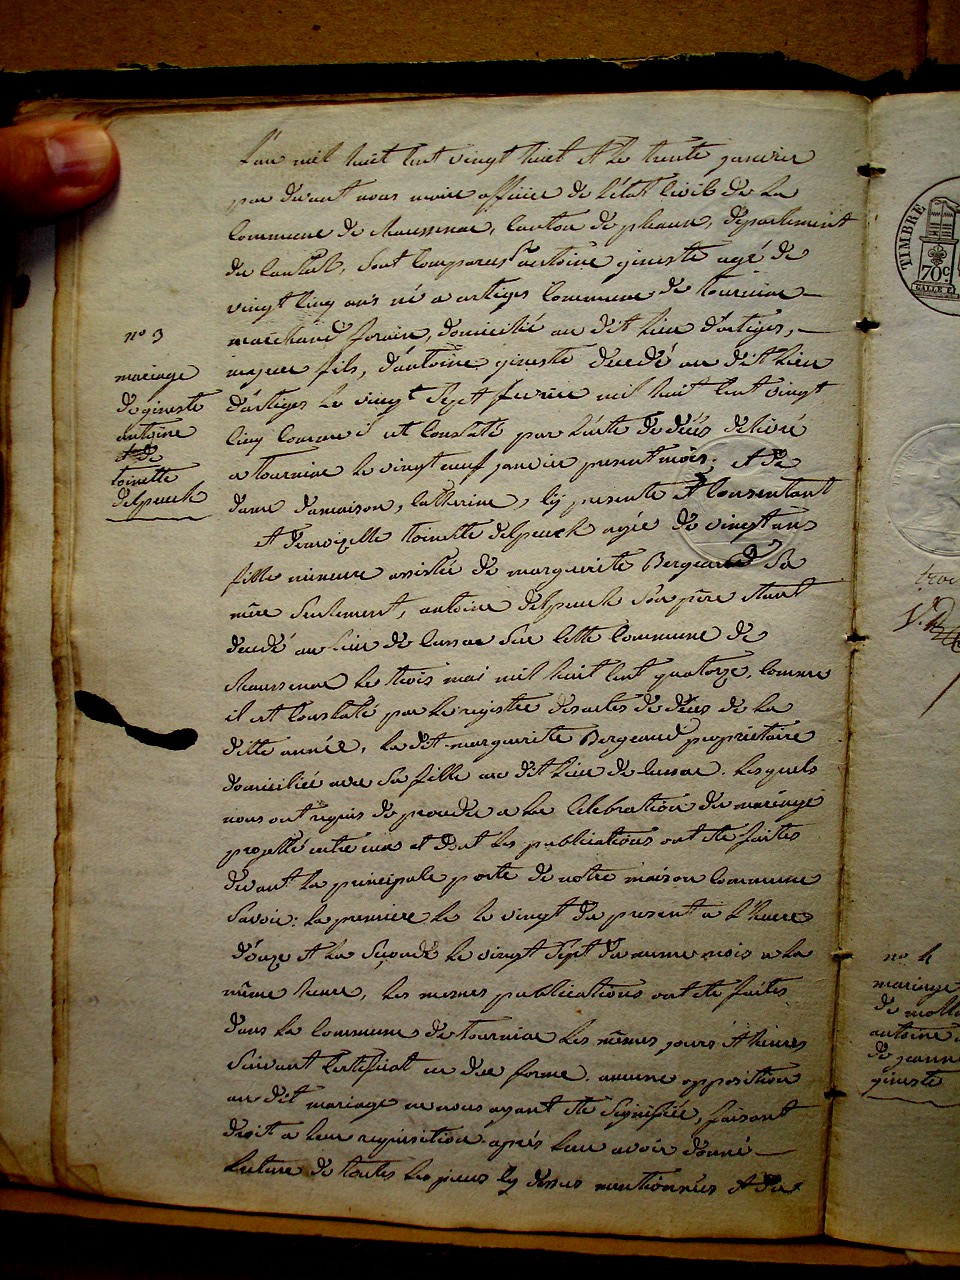 L'an mil huit cent vingt huit et le trente janvier
par devant nous maire officier de l'état civil de la
commune de chaussenac, canton de pleaux, département
du cantal, sont comparus antoine gineste agé de
vingt cinq ans né a artiges commune de tourniac
marchand forain, domicilié au dit lieu d'artiges,
majeur fils, d'antoine gineste decedé au dit lieu
d'artiges le vingt sept fevrier mil huit cent vingt
cinq comme il est constaté par l'acte de décès délivré
a tourniac le vingt neuf janvier present mois; et de
dame damaison, catherine, cy presente et consentant
et demoizelle toinette delpeuch agée de vingt ans
fille mineure assistée de marguerite Bergeaud sa
mère seulement, antoine delpeuch son père etant
decedé au lieu de cussac sur cette commune de
chaussenac le trois mai mil huit cent quatorze, comme
il est constaté par le registre des actes de décès de la
ditte année, la dit marguerite Bergeaud propriétaire
domiciliée avec sa fille au dit lieu de cussac. lesquels
nous ont requis de proceder a la celebration du mariage
projetté entre eux et dont les publications ont été faites
devant la principale porte de notre maison commune
savoir: la premiere le vingt du present a l'heure
d'onze et la seconde le vingt sept du meme mois a la
même heure, les mesmes publications ont été faites
dans la commune de tourniac les mêmes jours et heures
suivant certificat en due forme. aucune opposition
au dit mariage ne nous ayant été signifiée, faisant
droit a leur requisition après leur avoir donné
lecture de toutes les pieces cy dessus mentionnées et du
n° 3
mariage
de gineste
antoine
et de
toinette
delpeuch
TIMBRE
70c
n° 4
mariage
de
antoine
de jeanne
gineste